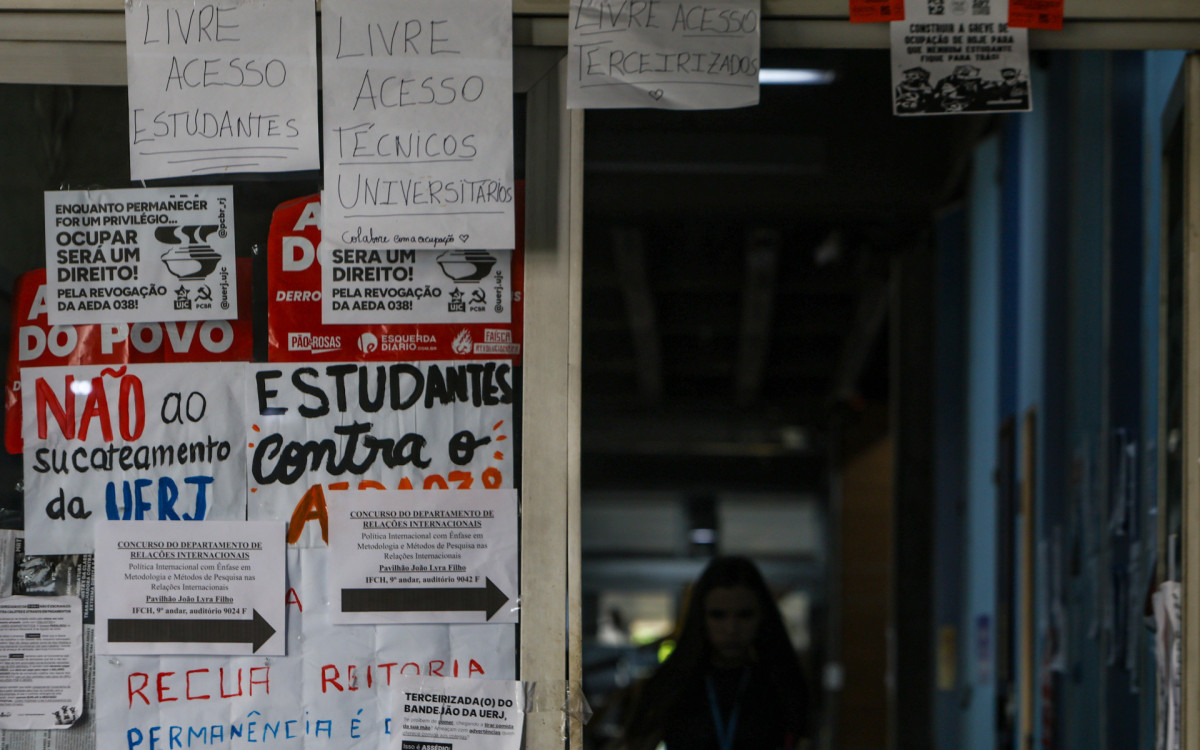 LIVRE
ACESSO
ESTUDANTES
LIVRE
ACESSO
TÉCNICOS
UNIVERSITÁRIOS
Colabore com a ocupação ♡
LIVRE ACESSO
TERCEIRIZADOS
♡
CONSTRUIR A GREVE DE
OCUPAÇÃO DE HOJE PARA
QUE NENHUM ESTUDANTE
FIQUE PARA TRÁS!
ENQUANTO PERMANECER
FOR UM PRIVILÉGIO...
OCUPAR
SERÁ UM
DIREITO!
PELA REVOGAÇÃO
DA AEDA 038!
UJC
PCBR
@pcbr_rj
@uerj.ujc
A
DO POVO
A
DO
DERRO
SERÁ UM
DIREITO!
PELA REVOGAÇÃO
DA AEDA 038!
UJC
PCBR
@uerj.ujc
PÃO E ROSAS
ESQUERDA
DIÁRIO
FAÍSCA
NÃO ao
sucateamento
da UERJ
ESTUDANTES
contra o
AEDA038
CONCURSO DO DEPARTAMENTO DE
RELAÇÕES INTERNACIONAIS
Política Internacional com Ênfase em
Metodologia e Métodos de Pesquisa nas
Relações Internacionais
Pavilhão João Lyra Filho
IFCH, 9º andar, auditório 9024 F
CONCURSO DO DEPARTAMENTO DE
RELAÇÕES INTERNACIONAIS
Política Internacional com Ênfase em
Metodologia e Métodos de Pesquisa nas
Relações Internacionais
Pavilhão João Lyra Filho
IFCH, 9º andar, auditório 9042 F
A
RECUA REITORIA
PERMANÊNCIA É D
TERCEIRIZADA(O) DO
BANDEJÃO DA UERJ,
Isso é ASSÉDIO